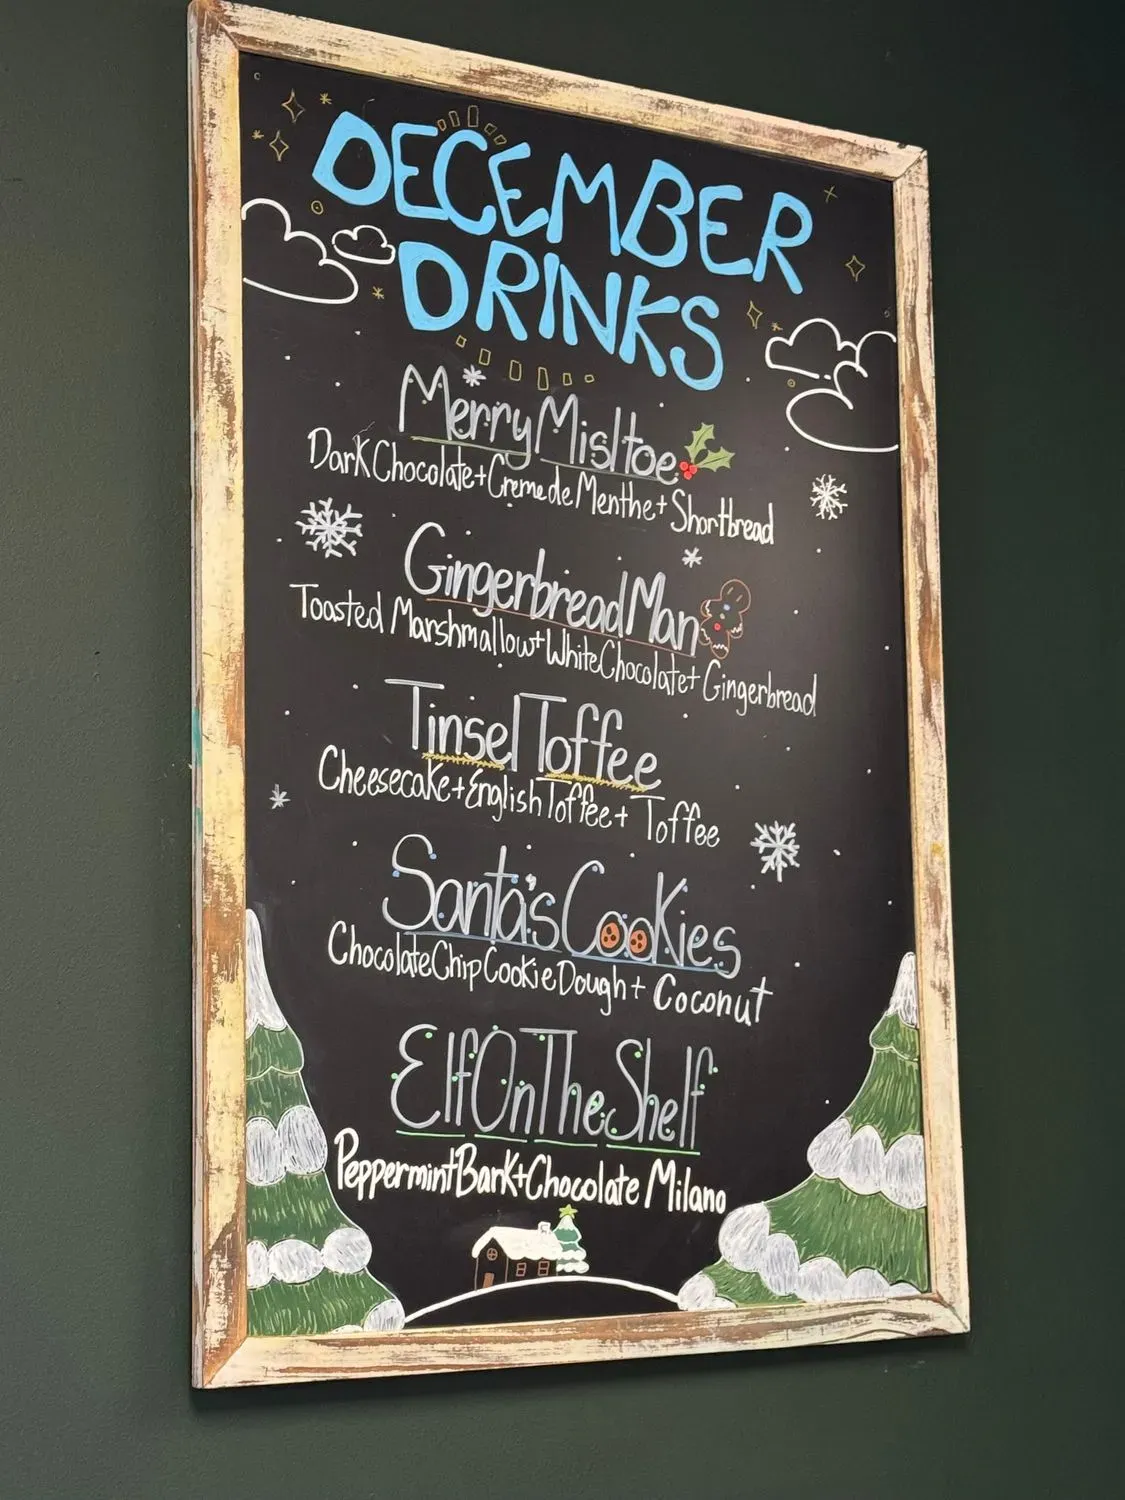 DECEMBER
DRINKS
Merry Misltoe
Dark Chocolate + Creme de Menthe + Shortbread
Gingerbread Man
Toasted Marshmallow + White Chocolate + Gingerbread
Tinsel Toffee
Cheesecake + English Toffee + Toffee
Santa's Cookies
Chocolate Chip Cookie Dough + Coconut
Elf On The Shelf
Peppermint Bark + Chocolate Milano